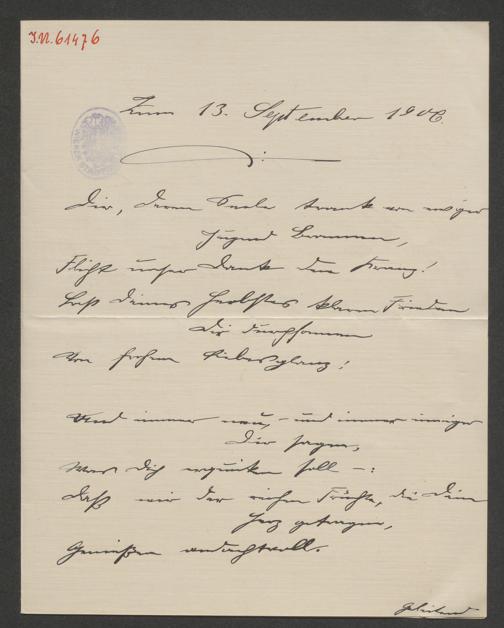 I.N. 61476
Zum 13. September 1906.
Dir, deren Seele trank von ew'ger
Jugend Bronnen,
Flicht unser Dank den Kranz!
Laß Deines Herbstes klaren Frieden
Dir durchsonnen
Von frohem Liebesglanz!
Und immer neu, – und immer inniger
Dir sagen,
Was Dich erquicken soll –:
Daß wir der reichen Früchte, die Dein
Herz getragen,
Genießen andachtvoll.